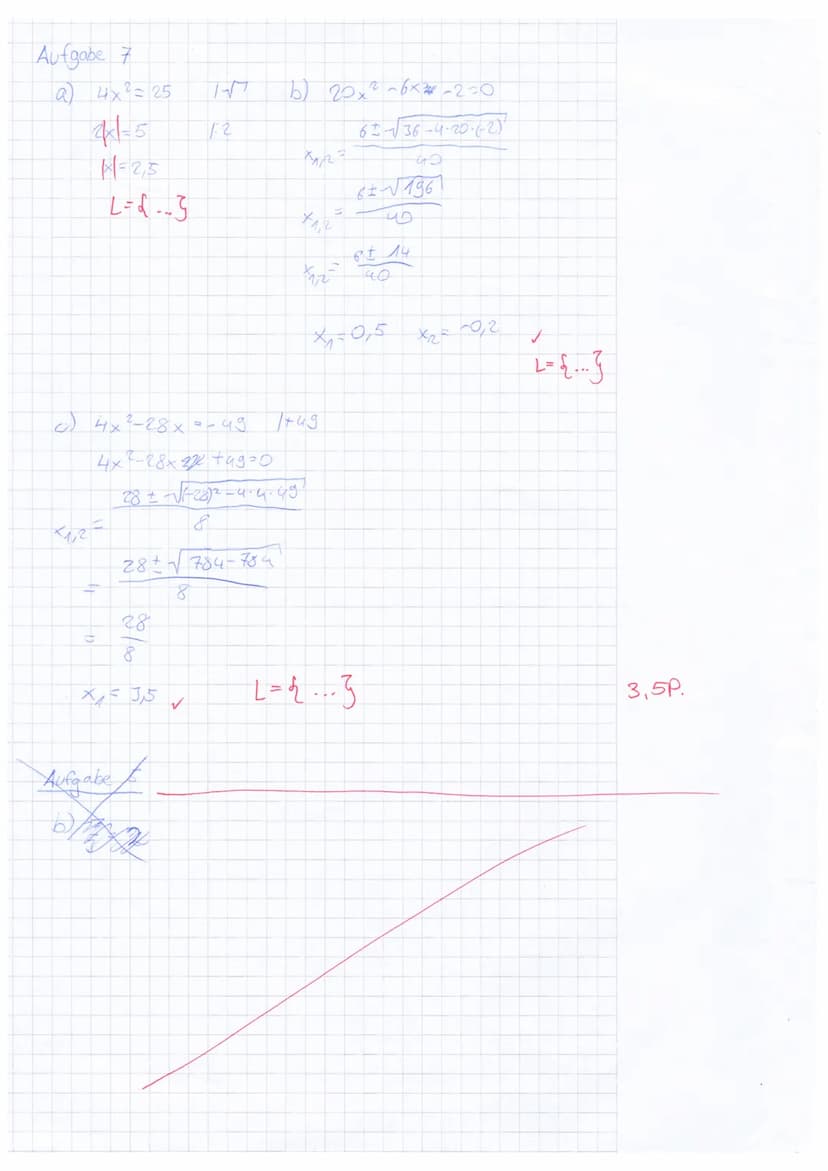 Aufgabe 7
a) 4x² = 25 |√
2|x| = 5 |:2
|x| = 2,5
L = {...}
b) 20x² - 6x - 2 = 0
x₁,₂ = (6 ± √(36 - 4·20·(-2)))/40
x₁,₂ = (6 ± √196)/40
x₁,₂ = (6 ± 14)/40
x₁ = 0,5 x₂ = -0,2 ✓
L = {...}
c) 4x² - 28x = -49 |+49
4x² - 28x + 49 = 0
x₁,₂ = (28 ± √((-28)² - 4·4·49))/8
= (28 ± √(784 - 784))/8
= 28/8
x₁ = 3,5 ✓ L = {...} 3,5P.
Aufgabe 5
b)